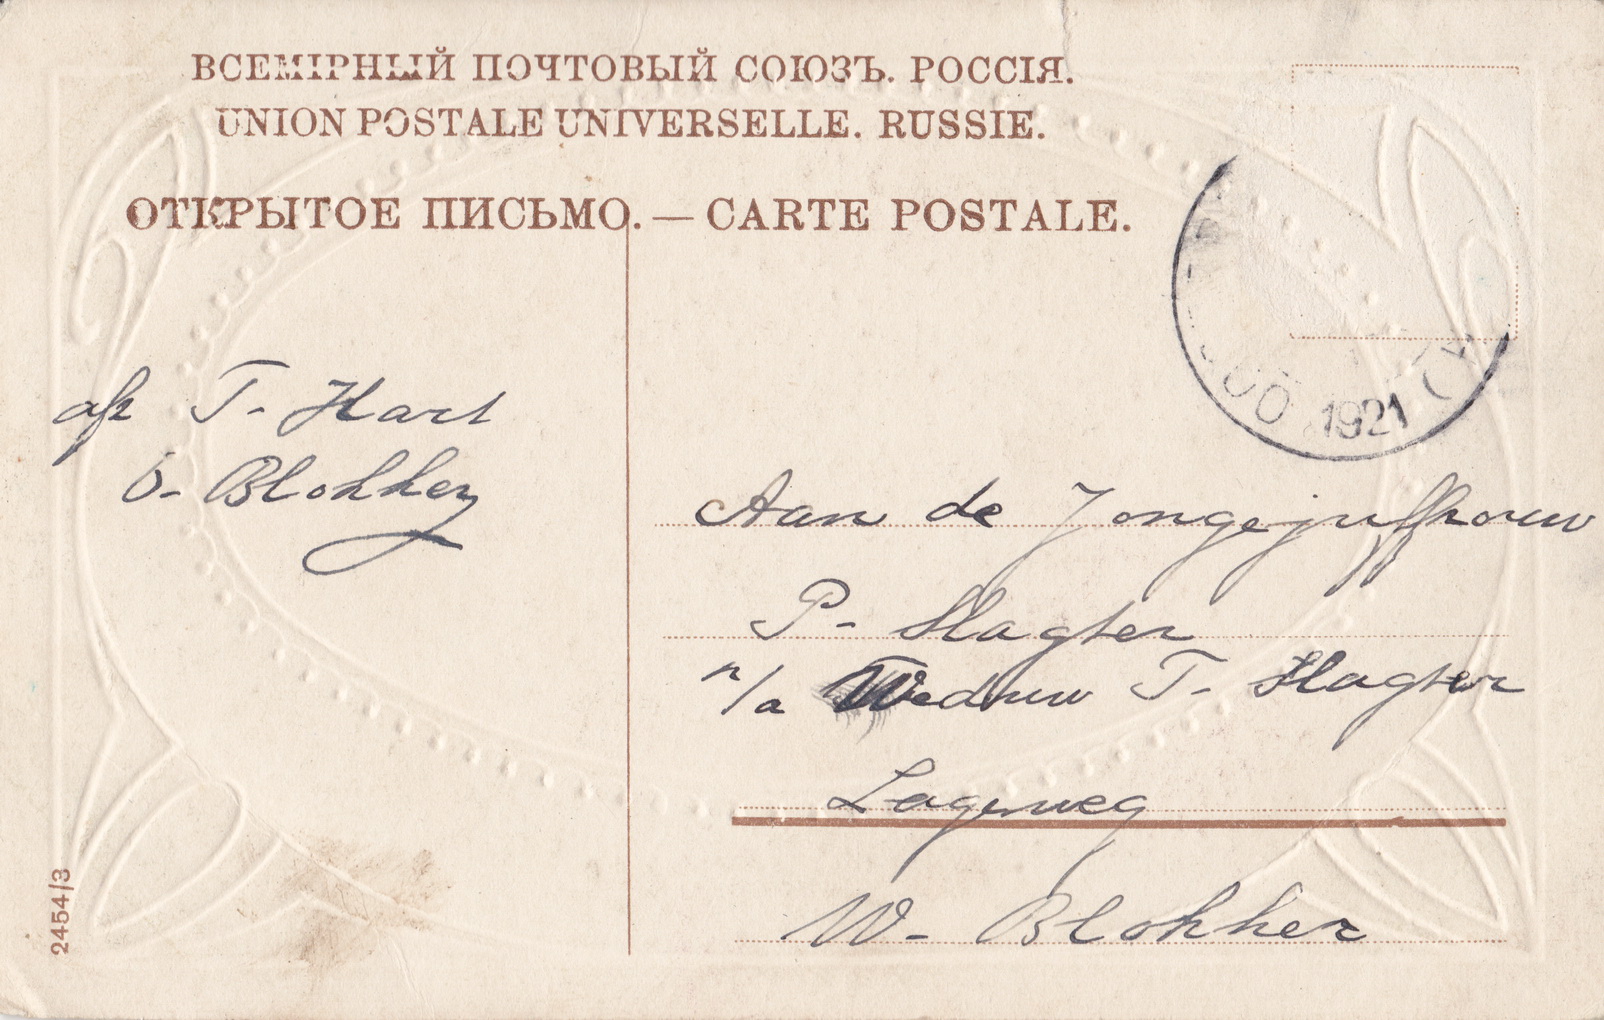 ВСЕМІРНЫЙ ПОЧТОВЫЙ СОЮЗЪ. РОССІЯ.
UNION POSTALE UNIVERSELLE. RUSSIE.
ОТКРЫТОЕ ПИСЬМО. — CARTE POSTALE.
1921
afz T. Hart
O. Blokker
Aan de Jongejuffrouw
P. Slagter
n/a Weduw T. Slagter
Lageweg
W. Blokker
2454/3